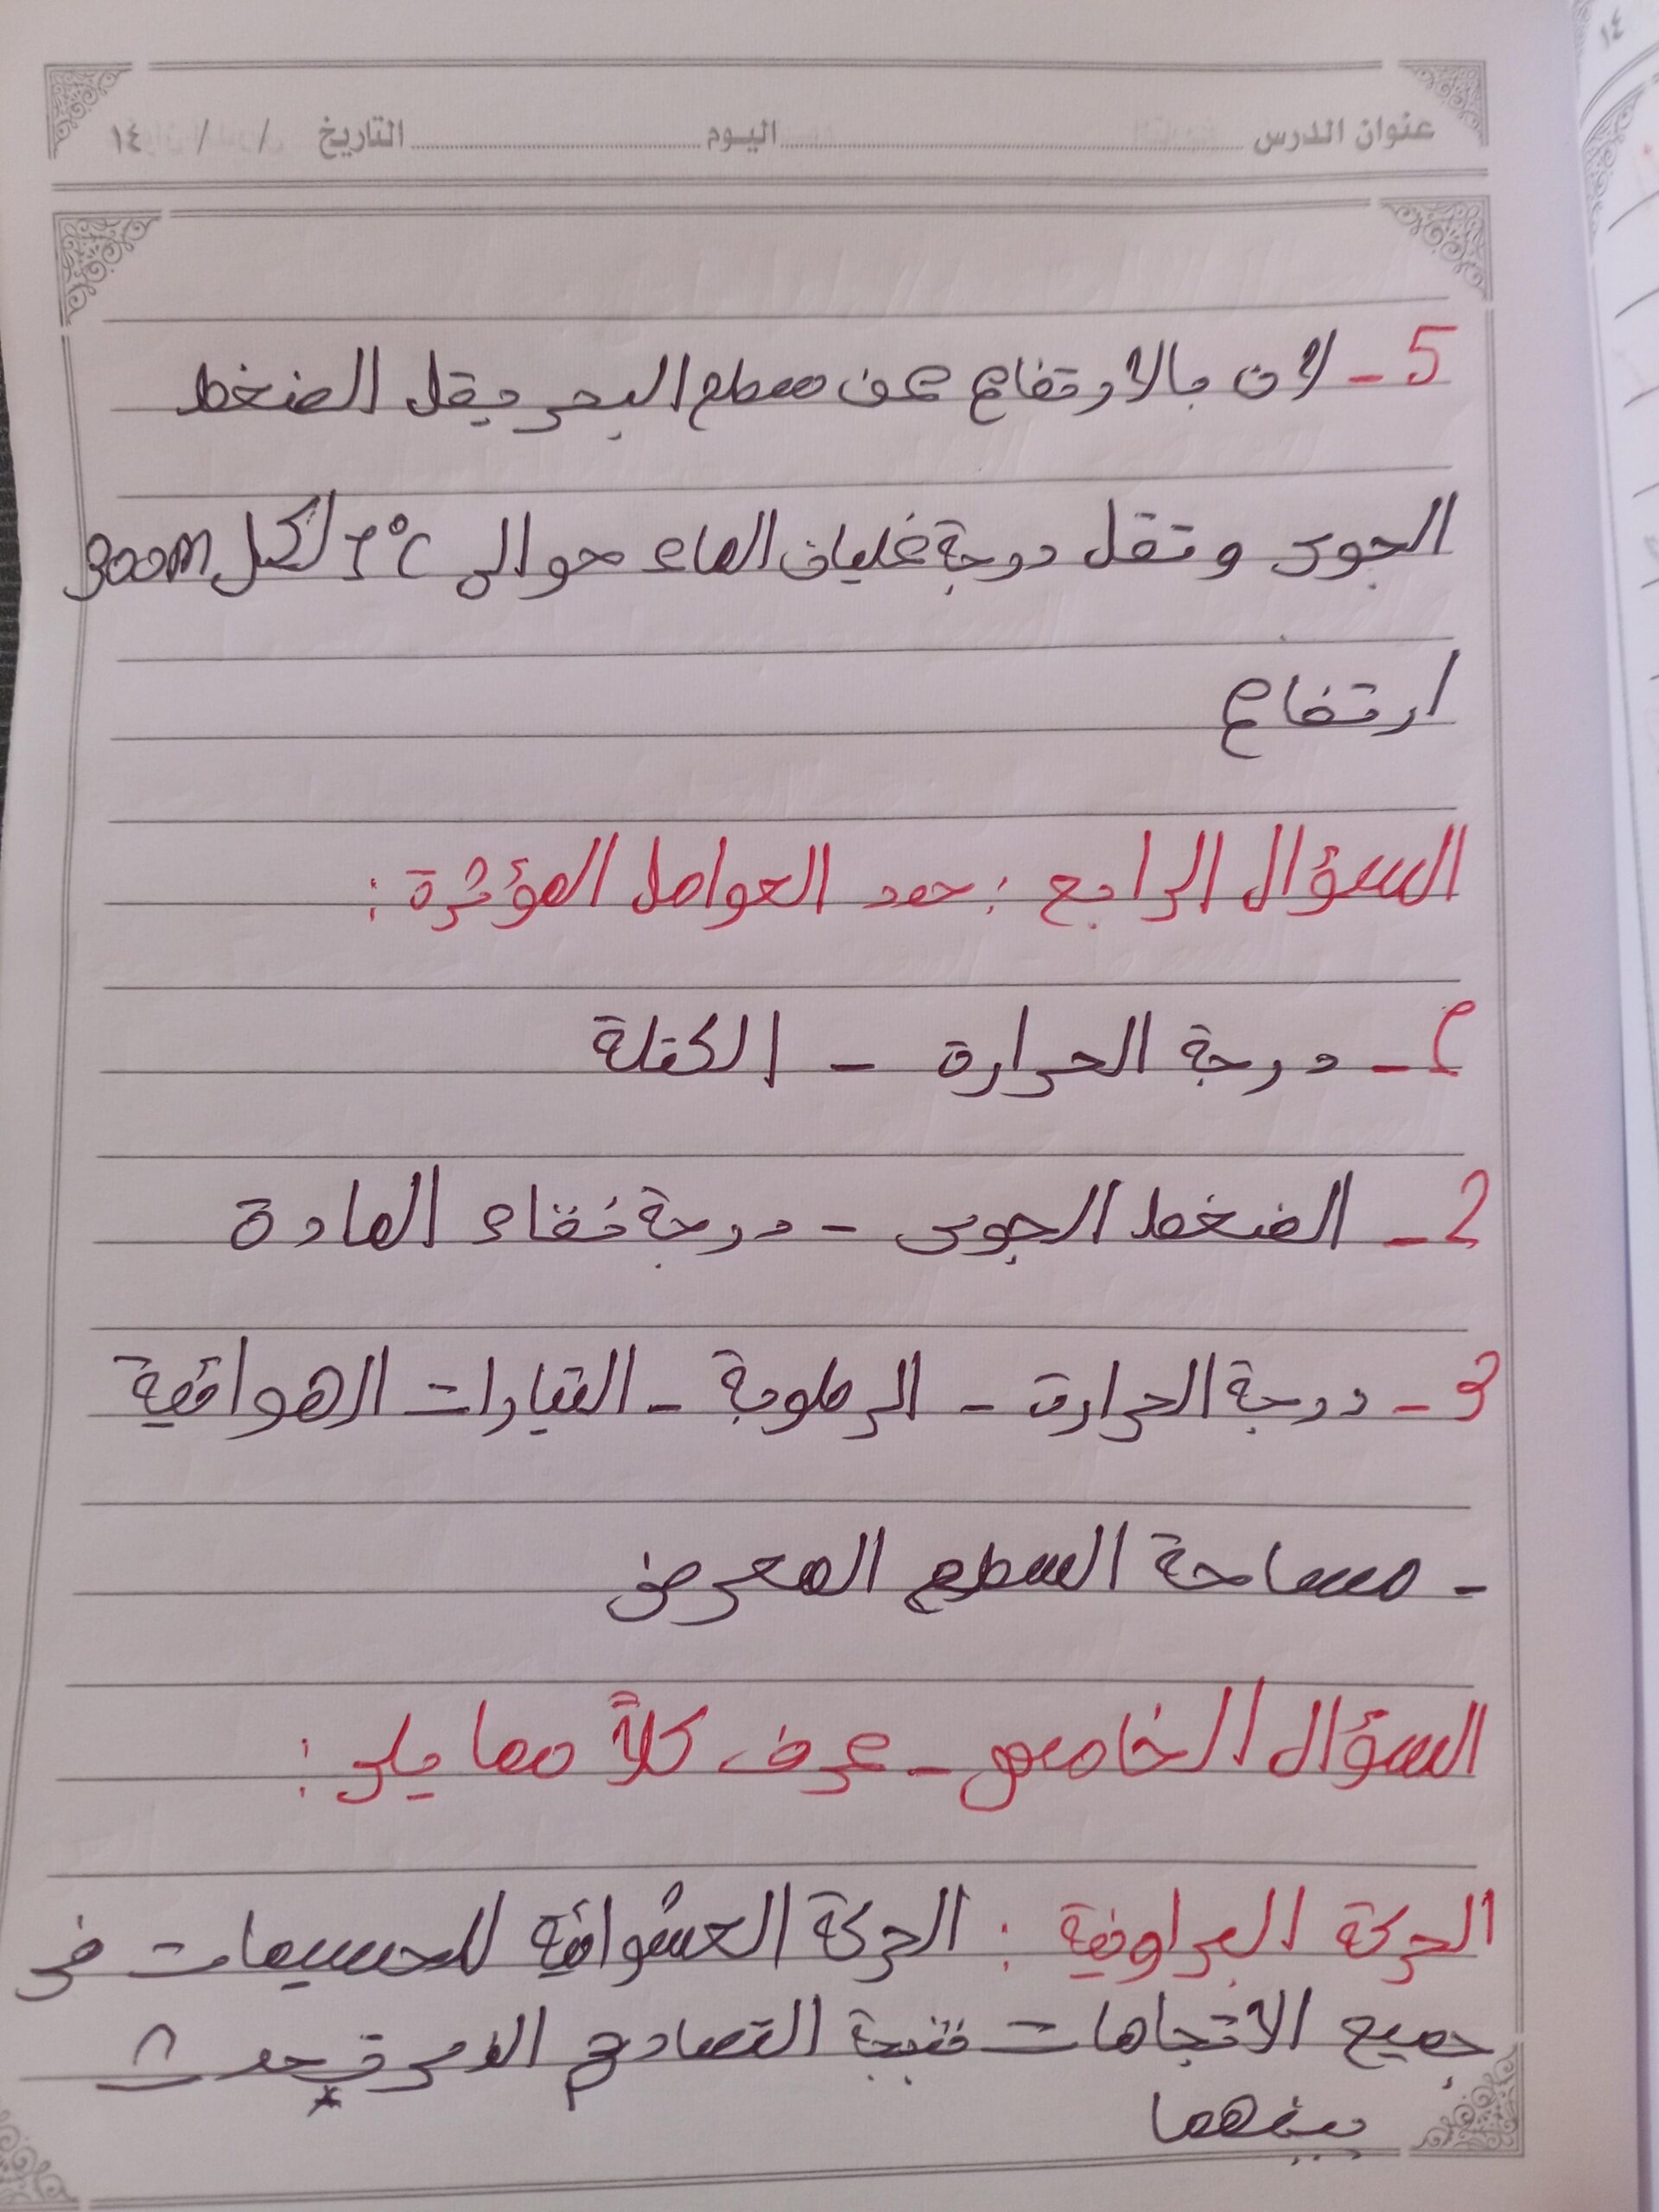 عنوان الدرس اليوم التاريخ / / ١٤
5- لان بالارتفاع عن سطح البحر يقل الضغط
الجوى وتقل درجة غليان الماء حوالى 1°C لكل 300m
ارتفاع
السؤال الرابع : حدد العوامل المؤثرة :
1- درجة الحرارة - الكتلة
2- الضغط الجوى - درجة نقاء المادة
3- درجة الحرارة - الرطوبة - التيارات الهوائية
- مساحة السطح المعرض
السؤال الخامس - عرف كلاً مما يلى :
الحركة البراونية : الحركة العشوائية للجسيمات فى
جميع الاتجاهات نتيجة التصادم الذى يحدث
بينهما